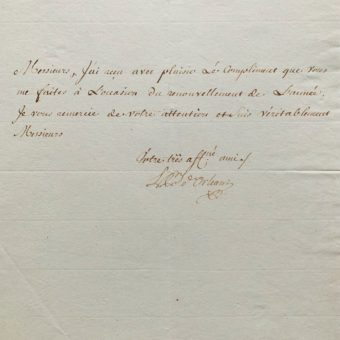 Messieurs, J'ai reçu avec plaisir Le Compliment que vous
me faites à L'occasion du renouvellement de L'année;
Je vous remercie de votre attention et suis véritablement
Messieurs
Votre très aff.né ami
d'Orleans